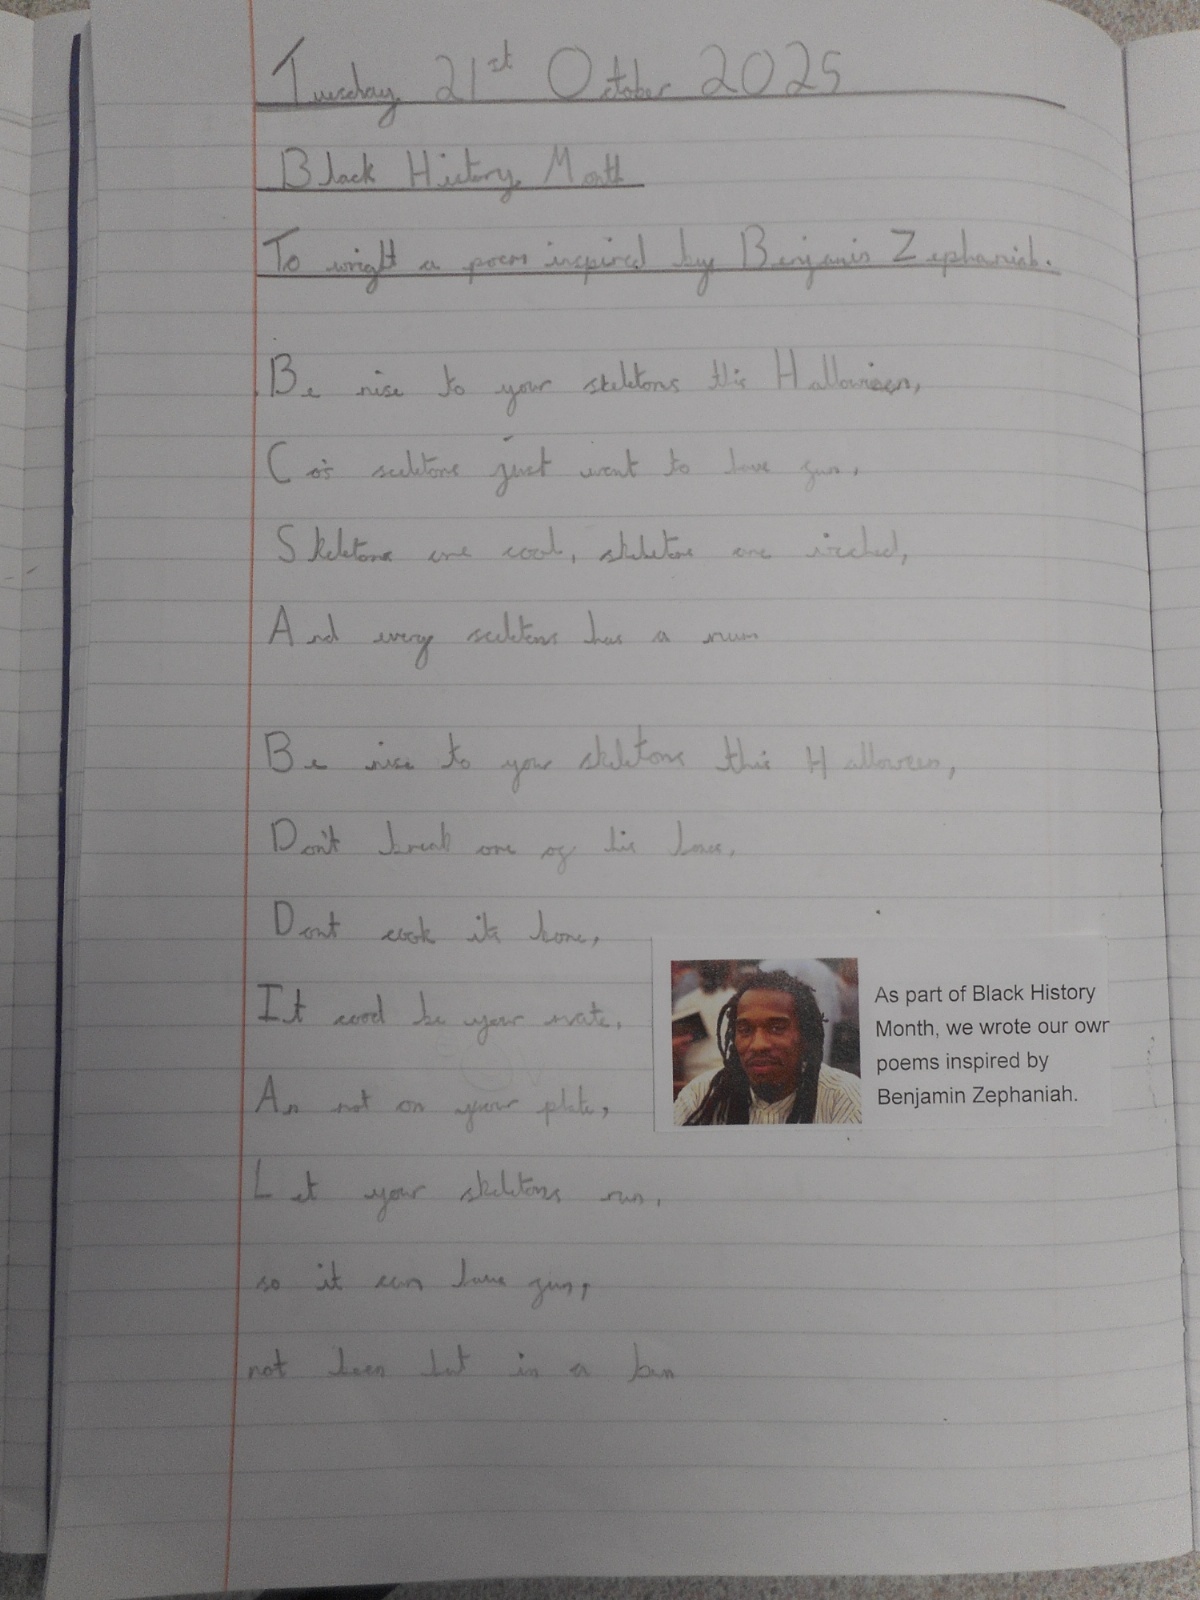 Tuesday 21st October 2025
Black History Month
To wright a poem inspired by Benjamin Zephaniah.
Be nise to your skeletons this Halloween,
Cos sceletons just want to have fun,
Skeletons are cool, skeletons are wicked,
And every sceletons has a mum
Be nise to your skeletons this Halloween,
Don't break one of his bones,
Dont cook it's bone,
It cood be your mate,
An not on your plate,
As part of Black History
Month, we wrote our own
poems inspired by
Benjamin Zephaniah.
Let your skeletons run,
so it can have fun,
not been but in a bun